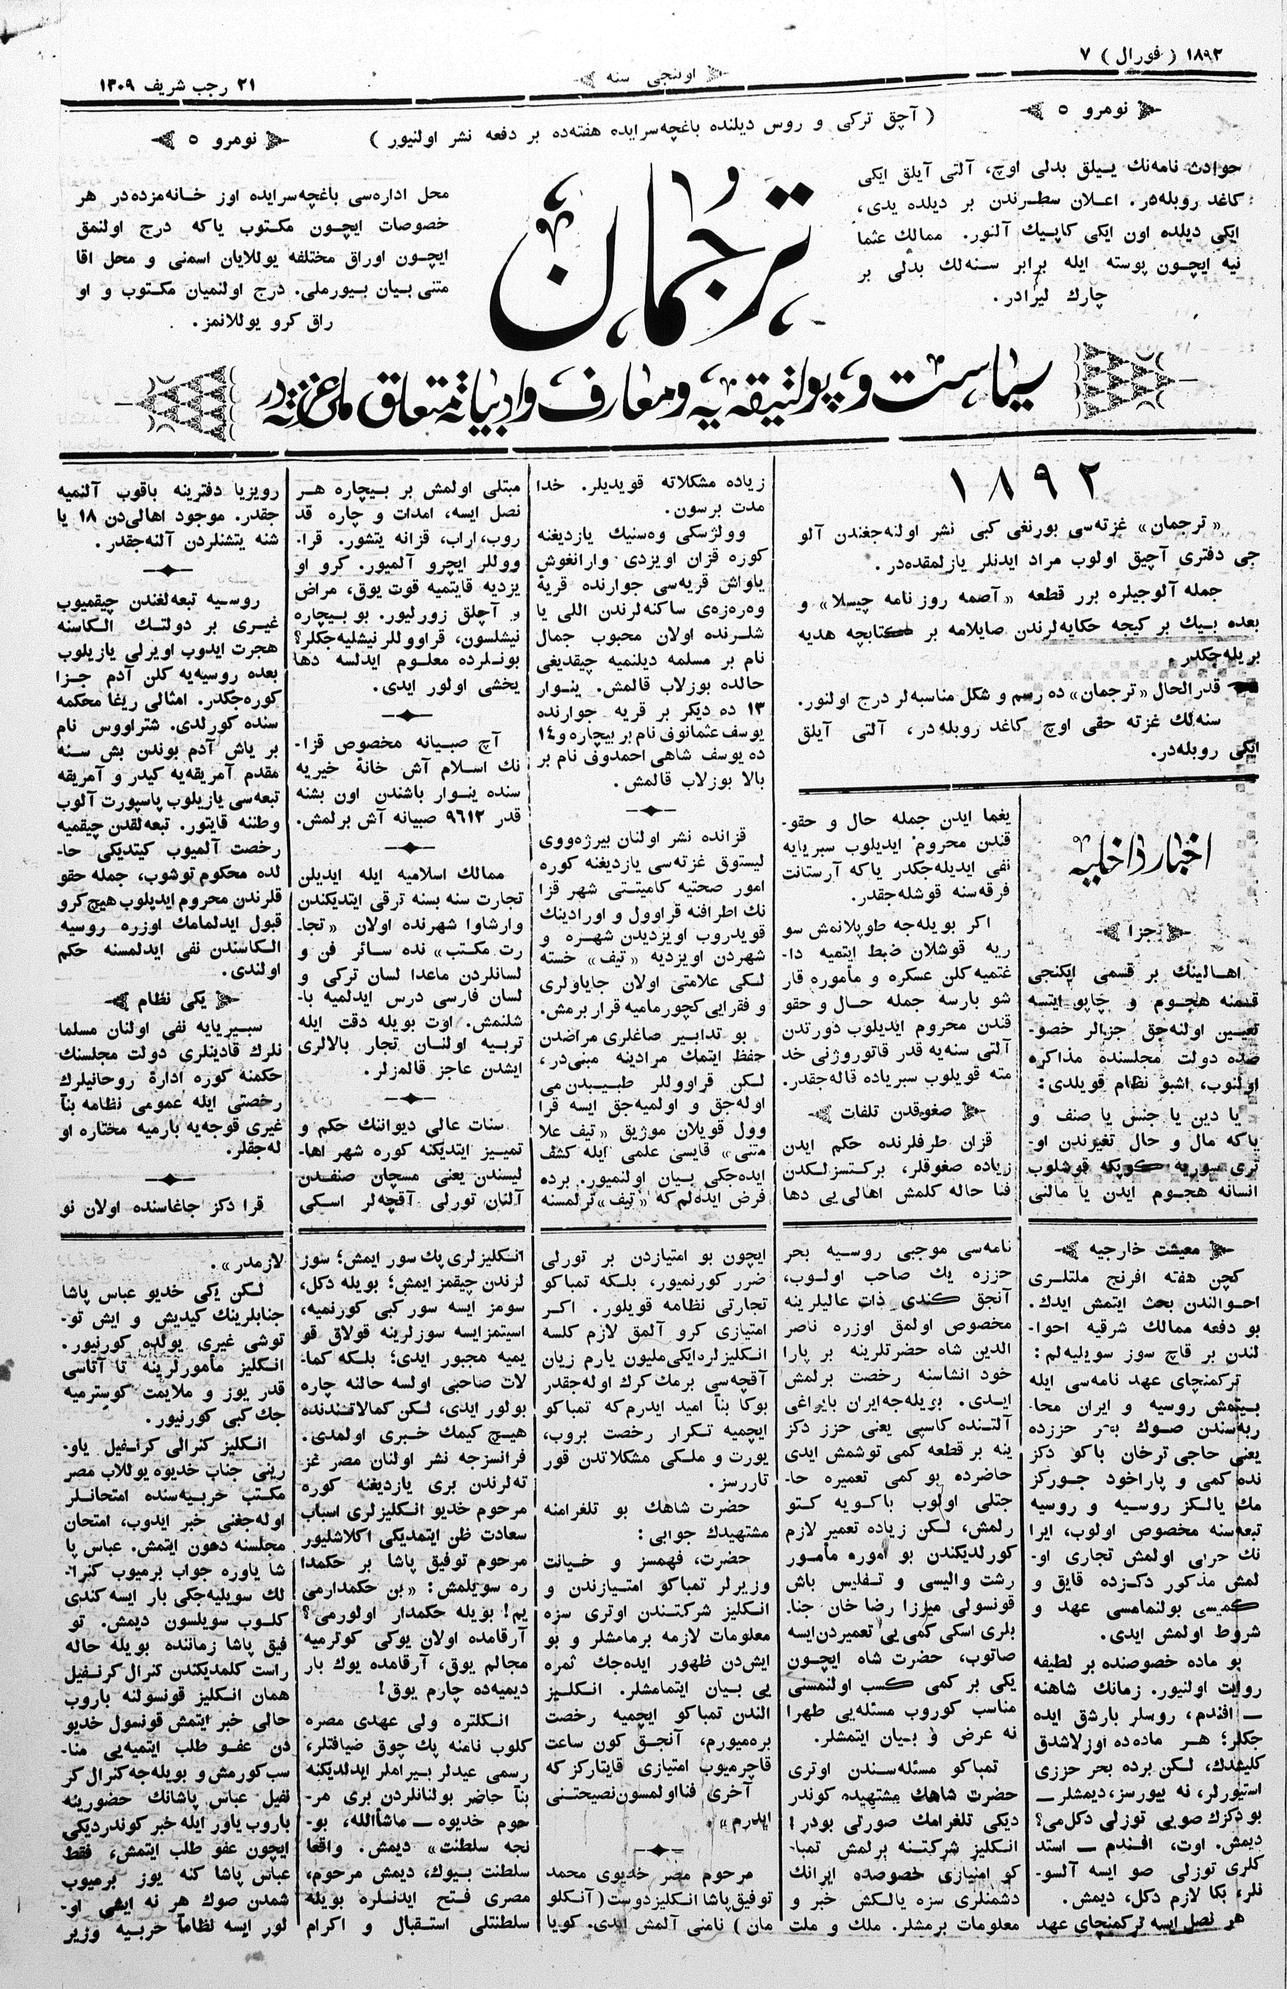 ١٨٩٢ ( فورال ) ٧
اوننجی سنه
٢١ رجب شریف ١٣٠٩
نومرو ٥
( آچق ترکی و روس دیلنده باغچه‌سرایده هفته‌ده بر دفعه نشر اولنیور )
نومرو ٥
حوادث نامه‌نك ییلق بدلی اوچ، آلتی آیلق ایکی
کاغد روبله‌در. اعلان سطرندن بر دیلده یدی،
ایکی دیلده اون ایکی کاپیك آلنور. ممالك عثما
نیه ایچون پوسته ایله برابر سنه‌لك بدلی بر
چارك لیرادر.
ترجمان
محل اداره‌سی باغچه‌سرایده اوز خانه‌مزده‌در هر
خصوصات ایچون مکتوب یاکه درج اولنمق
ایچون اوراق مختلفه یوللایان اسمنی و محل اقا
متنی بیان بیورملی. درج اولنمیان مکتوب و او
راق کرو یوللانمز.
سیاست و پولتیقه‌یه و معارف و ادبیاته متعلق ملی غزته‌در
١٨٩٢
«ترجمان» غزته‌سی بورنغی کبی نشر اولنه‌جغندن آلو
جی دفتری آچیق اولوب مراد ایدنلر یازلمقده‌در.
جمله آلوجیلره برر قطعه «آصمه روزنامه چیسلا» و
بعده بیك بر کیجه حکایه‌لرندن صایلامه بر کتابچه هدیه
بریله‌جکدر.
قدرالحال «ترجمان» ده رسم و شکل مناسبه‌لر درج اولنور.
سنه‌لك غزته حقی اوچ کاغد روبله‌در، آلتی آیلق
ایکی روبله‌در.
اخبار داخلیه
جزا
اهالینك بر قسمی ایکنجی
قسمنه هجوم و چاپو ایتسه
تعیین اولنه‌جق جزالر خصو-
صده دولت مجلسنده مذاکره
اولنوب، اشبو نظام قویلدی:
یا دین یا جنس یا صنف و
یاکه مال و حال تغیرندن او-
تری سوریه کوپکه قوشلوب
انسانه هجوم ایدن یا مالنی
یغما ایدن جمله حال و حقو-
قندن محروم ایدیلوب سبریایه
نفی ایدیله‌جکدر یاکه آرستانت
فرقه‌سنه قوشله‌جقدر.
اکر بویله‌جه طوپلانه‌ش سو
ریه قوشلان ضبط ایتمیه دا-
غتمیه کلن عسکره و مأموره قار
شو بارسه جمله حال و حقو
قندن محروم ایدیلوب دورتدن
آلتی سنه‌یه قدر قاتورژنی خد
مته قویلوب سبریاده قاله‌جقدر.
صغوقدن تلفات
قزان طرفلرنده حکم ایدن
زیاده صغوقلر، برکتسزلکدن
فنا حاله کلمش اهالی‌یی دها
زیاده مشکلاته قویدیلر. خدا
مدت برسون.
وولژسکی وه‌ستنیك یازدیغنه
کوره قزان اویزدی وارانغوش
یاواش قریه‌سی جوارنده قریۀ
وه‌ره‌زه‌ی ساکنه‌لرندن اللی یا
شلرنده اولان محبوب جمال
نام بر مسلمه دیلنمیه چیقدیغی
حالده بوزلاب قالمش. ینوار
١٣ ده دیکر بر قریه جوارنده
یوسف عثمانوف نام بر بیچاره و١٤
ده یوسف شاهی احمدوف نام بر
بالا بوزلاب قالمش.
قزانده نشر اولنان بیرژه‌ووی
لیستوق غزته‌سی یازدیغنه کوره
امور صحتیه کامیتتی شهر قزا
نك اطرافنه قراوول و اورادینك
قویدروب اویزدیدن شهره و
شهردن اویزدیه «تیف» خسته
لکی علامتی اولان جایاولری
و فقرایی کچورمامیه قرار برمش.
بو تدابیر صاغلری مراضدن
حفظ ایتمك مرادینه مبنی‌در،
لکن قراووللر طبیبدن‌می
اوله‌جق و اولمیه‌جق ایسه قرا
وول قویلان موژیق «تیف علا
متنی» قایسی علمی ایله کشف
ایده‌جکی بیان اولنمیور. برده
فرض ایده‌لم‌که «تیف» ترلمسنه
مبتلی اولمش بر بیچاره هر
نصل ایسه، امدات و چاره قد
روب، اراب، قزانه یتشور. قرا-
ووللر ایچرو آلمیور. کرو او
یزدیه قایتمیه قوت یوق، مراض
و آچلق زورلیور. بو بیچاره
نیشلسون، قراووللر نیشلیه‌جکلر؟
بونلرده معلوم ایدلسه دها
یخشی اولور ایدی.
آچ صبیانه مخصوص قزا-
نك اسلام آش خانۀ خیریه
سنده ینوار باشندن اون بشنه
قدر ٩٦١٢ صبیانه آش برلمش.
ممالك اسلامیه ایله ایدیلن
تجارت سنه بسنه ترقی ایتدیکندن
وارشاوا شهرنده اولان «تجا-
رت مکتب» نده سائر فن و
لسانلردن ماعدا لسان ترکی و
لسان فارسی درس ایدلمیه با-
شلنمش. اوت بویله دقت ایله
تربیه اولنان تجار بالالری
ایشدن عاجز قالمزلر.
سنات عالی دیواننك حکم و
تمییز ایتدیکنه کوره شهر اها-
لیسندن یعنی مسچان صنفدن
آلنان تورلی آقچه‌لر اسکی
رویزیا دفترینه باقوب آلنمیه
جقدر. موجود اهالی‌دن ١٨ یا
شنه یتشنلردن آلنه‌جقدر.
روسیه تبعه‌لغندن چیقمیوب
غیری بر دولتك الکاسنه
هجرت ایدوب اویرلی یازیلوب
بعده روسیه‌یه کلن آدم جزا
کوره‌جکدر. امثالی ریغا محکمه
سنده کورلدی. شتراووس نام
بر یاش آدم بوندن بش سنه
مقدم آمریقه‌یه کیدر و آمریقه
تبعه‌سی یازیلوب پاسپورت آلوب
وطننه قایتور. تبعه‌لقدن چیقمیه
رخصت آلمیوب کیتدیکی حا-
لده محکوم توشوب، جمله حقو
قلرندن محروم ایدیلوب هیچ کرو
قبول ایدلمامك اوزره روسیه
الکاسندن نفی ایدلمسنه حکم
اولندی.
یکی نظام
سبیریایه نفی اولنان مسلما
نلرك قادینلری دولت مجلسنك
حکمنه کوره ادارۀ روحانیلرك
رخصتی ایله عمومی نظامه بنآ
غیری قوجه‌یه بارمیه مختاره او
له‌جقلر.
قرا دکز جاغاسنده اولان نو
معیشت خارجیه
کچن هفته افرنج ملتلری
احوالندن بحث ایتمش ایدك.
بو دفعه ممالك شرقیه احوا-
لندن بر قاچ سوز سویلیه‌لم:
ترکمنچای عهد نامه‌سی ایله
بیتمش روسیه و ایران محا-
ربه‌سندن صوك بحر حززده
یعنی حاجی ترخان باکو دکز
نده کمی و پاراخود جورکز
مك یالکز روسیه و روسیه
تبعه‌سنه مخصوص اولوب، ایرا
نك حربی اولمش تجاری او-
لمش مذکور دکزده قایق و
کمیسی بولنمامسی عهد و
شروط اولمش ایدی.
بو ماده خصوصنده بر لطیفه
روایت اولنیور. زمانك شاهنه
— افندم، روسلر بارشق ایده
جکلر؛ هر ماده‌ده اوزلاشدق
کلیشدك، لکن برده بحر حززی
استیورلر، نه بیورسز، دیمشلر—
بو دکزك صویی توزلی دکل‌می؟
دیمش. اوت، افندم — استد
کلری توزلی صو ایسه آلسو-
نلر، بکا لازم دکل، دیمش.
هر نصل ایسه ترکمنچای عهد
نامه‌سی موجبی روسیه بحر
حززه یك صاحب اولوب،
آنجق کندی ذات عالیلرینه
مخصوص اولمق اوزره ناصر
الدین شاه حضرتلرینه بر پارا
خود انشاسنه رخصت برلمش
ایدی. بریله‌جه ایران بایراغی
آلتنده کاسپی یعنی حزز دکز
ینه بر قطعه کمی توشمش ایدی
حاضرده بو کمی تعمیره حا-
جتلی اولوب باکویه کتو
رلمش، لکن زیاده تعمیر لازم
کورلدیکندن بو اموره مأمور
رشت والیسی و تفلیس باش
قونسولی میرزا رضا خان جنا-
بلری اسکی کمی‌یی تعمیردن ایسه
صاتوب، حضرت شاه ایچون
یکی بر کمی کسب اولنمسنی
مناسب کوروب مسئله‌یی طهرا
نه عرض و بیان ایتمشلر.
تمباکو مسئله‌سندن اوتری
حضرت شاهك مشتهیده کوندر
دیکی تلغرامك صورتلی بودر!
انکلیز شرکتنه برلمش تمبا-
کو امتیازی خصوصده ایرانك
دشمنلری سزه یالکش خبر و
معلومات برمشلر. ملك و ملت
ایچون بو امتیازدن بر تورلی
ضرر کورنمیور، بلکه تمباکو
تجارتی نظامه قویلور. اکر
امتیازی کرو آلمق لازم کلسه
انکلیزلره ایکی ملیون یارم زیان
آقچه‌سی برمك کرك اوله‌جقدر
بوکا بنآ امید ایدرم‌که تمباکو
ایچمیه تکرار رخصت بروب،
یورت و ملکی مشکلاتدن قور
تاررسز.
حضرت شاهك بو تلغرامنه
مشتهیدك جوابی:
حضرت، فهمسز و خیانت
وزیرلر تمباکو امتیازندن و
انکلیز شرکتندن اوتری سزه
معلومات لازمه برمامشلر و بو
ایش‌دن ظهور ایده‌جك ثمره
یی بیان ایتمامشلر. انکلیز
الندن تمباکو ایچمیه رخصت
بره‌میورم، آنجق کون ساعت
قاچرمیوب امتیازی قایتارکزکه
آخری فنا اولمسون نصیحتنی
ایدرم».
مرحوم مصر خدیوی محمد
توفیق پاشا انکلیزدوست ( آنکلو
مان ) نامنی آلمش ایدی. کویا
انکلیزلری پك سور ایمش؛ سوز
لرندن چیقمز ایمش؛ بویله دکل،
سومز ایسه سور کبی کورنمیه،
اسیتمز ایسه سوزلرینه قولاق قو
یمیه مجبور ایدی؛ بلکه کما-
لات صاحبی اولسه حالنه چاره
بولور ایدی، لکن کمالاتندنده
هیچ کیمك خبری اولمدی.
فرانسزجه نشر اولنان مصر غز
ته‌لرندن بری یازدیغنه کوره
مرحوم خدیو انکلیزلری اسباب
سعادت ظن ایتمدیکی اکلاشلیور
مرحوم توفیق پاشا بر حکمدا
ره سویلمش: «بن حکمدارمی
یم! بویله حکمدار اولورمی؟
آرقامده اولان یوکی کوترمیه
مجالم یوق، آرقامده یوك بار
دیمیه‌ده چارم یوق!
انکلتره ولی عهدی مصره
کلوب نامنه پك چوق ضیافتلر،
رسمی عیدلر بیراملر ایدلدیکنه
بنآ حاضر بولنانلردن بری مر-
حوم خدیوه — ماشاالله، بو-
نجه سلطنت» دیمش. واقعا
سلطنت بیوك، دیمش مرحوم،
مصری فتح ایدنلره بویله
سلطنتلی استقبال و اکرام
لازمدر».
لکن یکی خدیو عباس پاشا
جنابلرینك کیدیش و ایش تو-
توشی غیری یولده کورنیور.
انکلیز مأمورلرینه تا آتاسی
قدر یوز و ملایمت کوسترمیه
جك کبی کورنیور.
انکلیز کنرالی کرنفیل یاو-
رینی جناب خدیوه یوللاب مصر
مکتب حربیه‌سنده امتحانلر
اوله‌جغنی خبر ایدوب، امتحان
مجلسنه دعون ایتمش. عباس پا
شا یاوره جواب برمیوب کنرا-
لك سویلیه‌جکی بار ایسه کندی
کلوب سویلسون دیمش. تو
فیق پاشا زماننده بویله حاله
راست کلمدیکندن کنرال کرنفیل
همان انکلیز قونسولنه باروب
حالی خبر ایتمش قونسول خدیو
دن عفو طلب ایتمیه‌یی منا-
سب کورمش و بویله‌جه کنرال کر
نفیل عباس پاشانك حضورینه
باروب یاور ایله خبر کوندردیکی
ایچون عفو طلب ایتمش، فقط
عباس پاشا کنه یوز برمیوب
شمدن صوك هر نه ایشی او-
لور ایسه نظاماً حربیه وزیر